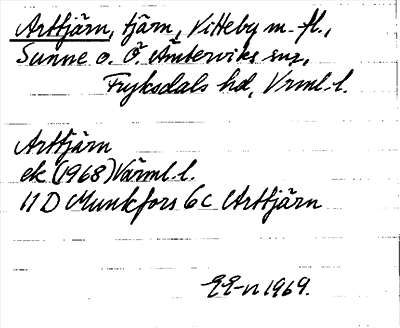 Arttjärn, tjärn, Vitteby m. fl.,
Sunne o. Ö. Ämterviks snr,
Fryksdals hd, Vrml. l.
Arttjärn
ek. (1968) Värml. l.
11 D Munkfors 6c Arttjärn
EE-n 1969.